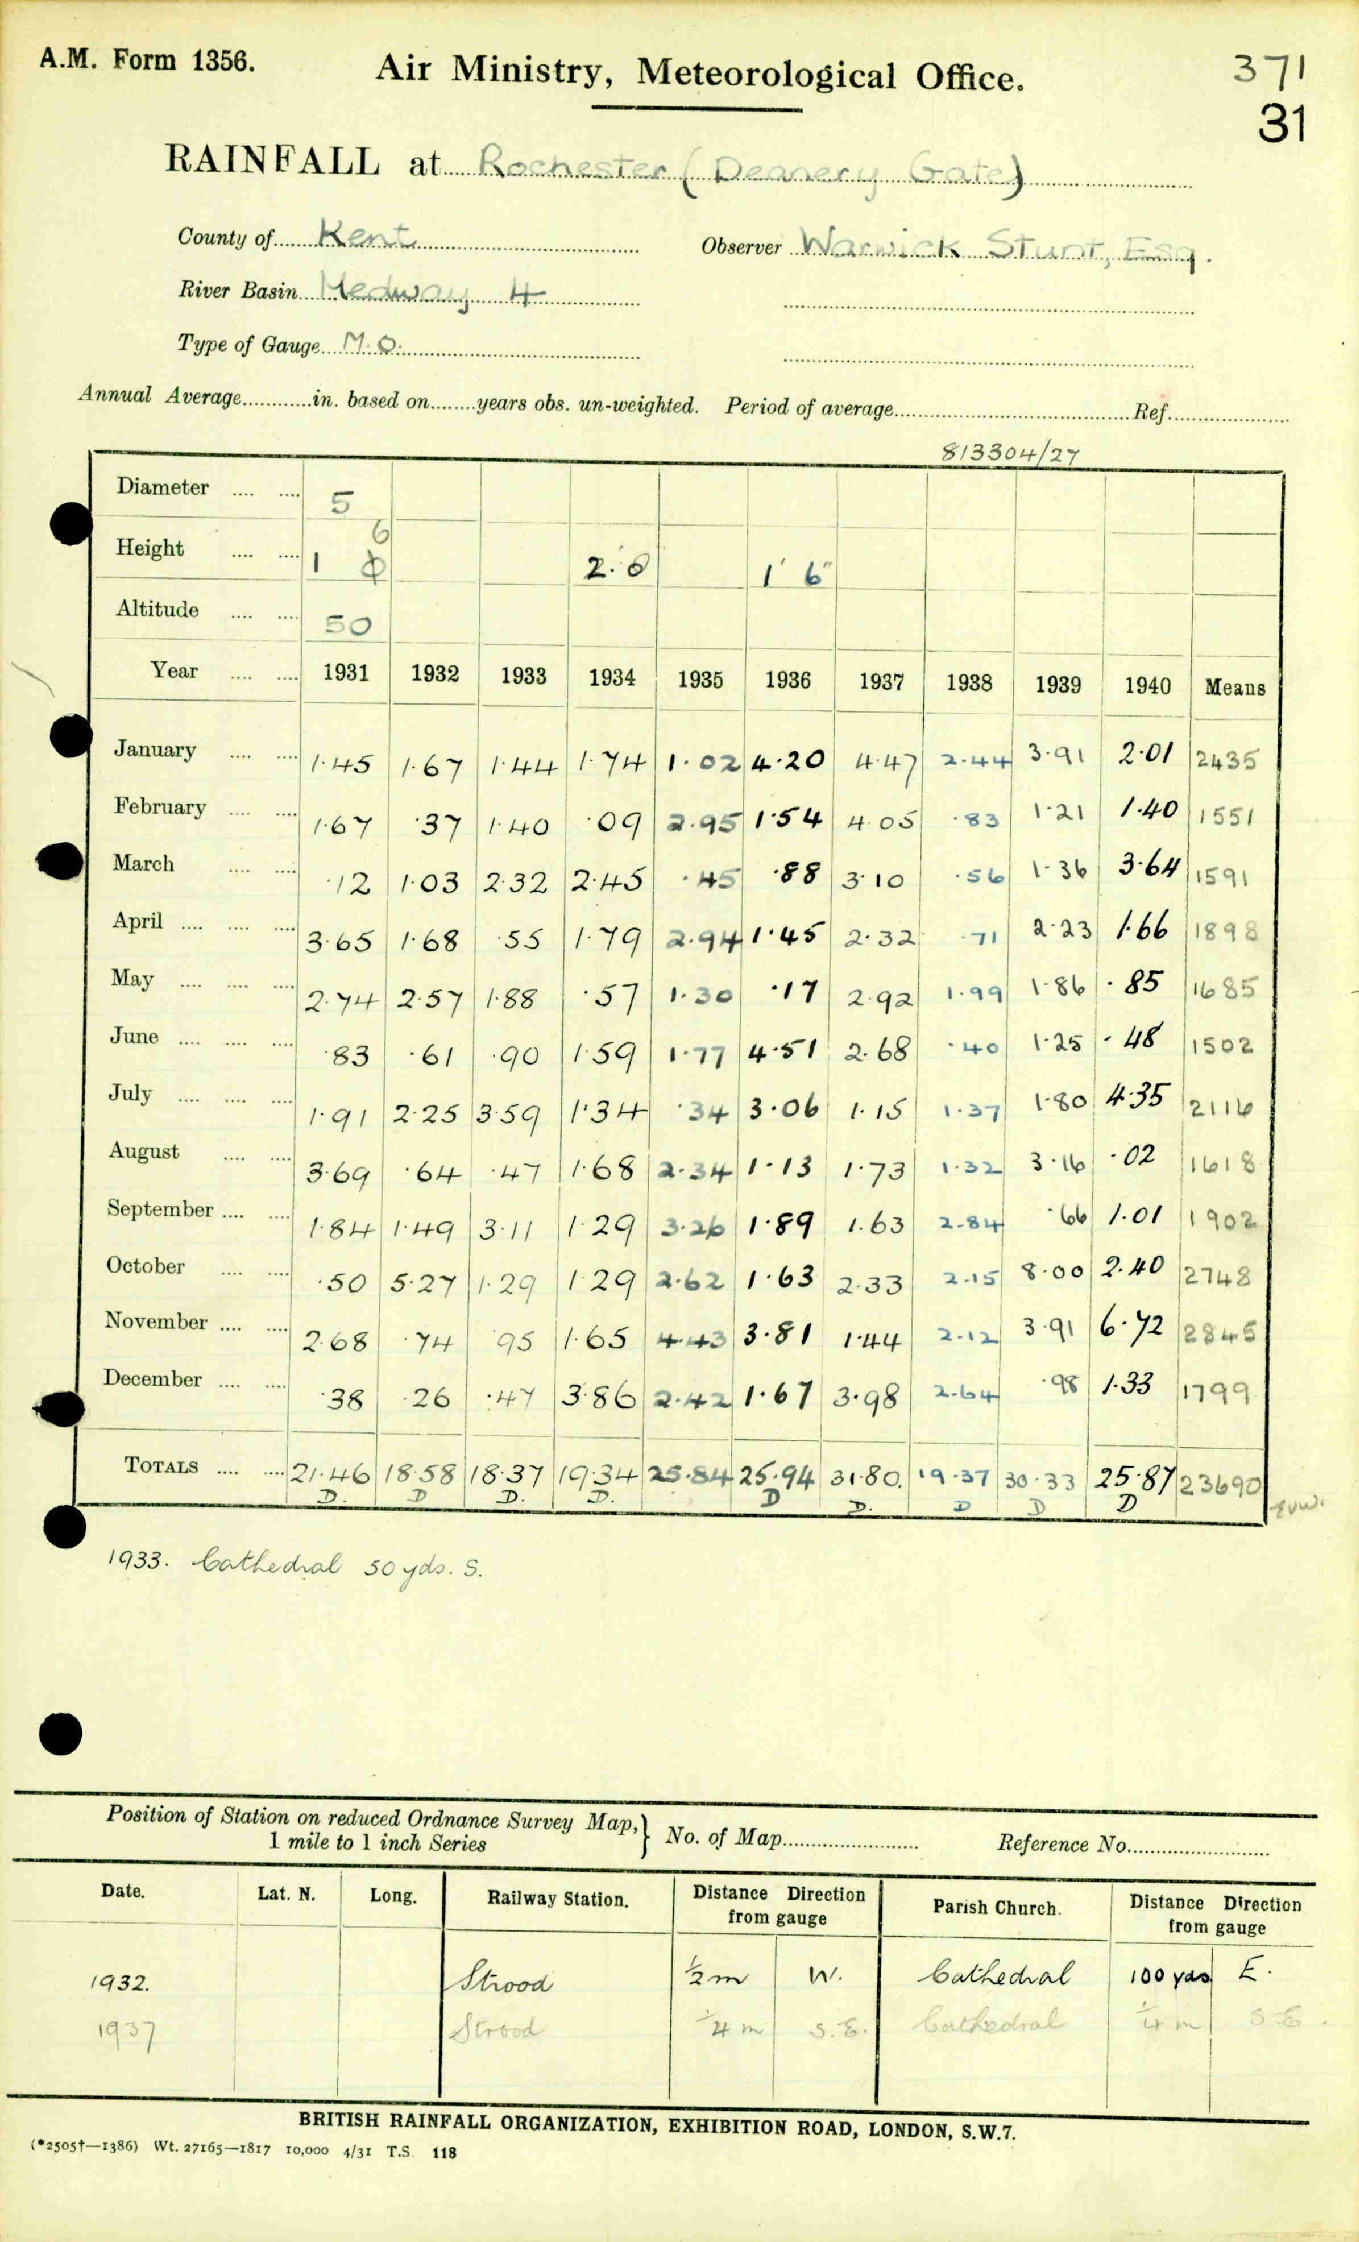 A.M. Form 1356.
Air Ministry, Meteorological Office.
371
31
RAINFALL at Rochester (Deanery Gate)
County of Kent Observer Warwick Stunt, Esq.
River Basin Medway 4
Type of Gauge M.O.
Annual Average in. based on years obs. un-weighted. Period of average Ref.
813304/27
Diameter 5
Height 1 6 2.0 1' 6"
Altitude 50
Year 1931 1932 1933 1934 1935 1936 1937 1938 1939 1940 Means
January 1.45 1.67 1.44 1.74 1.02 4.20 4.47 2.44 3.91 2.01 2435
February 1.67 .37 1.40 .09 2.95 1.54 4.05 .83 1.21 1.40 1551
March .12 1.03 2.32 2.45 .45 .88 3.10 .56 1.36 3.64 1591
April 3.65 1.68 .55 1.79 2.94 1.45 2.32 .71 2.23 1.66 1898
May 2.74 2.57 1.88 .57 1.30 .17 2.92 1.99 1.86 .85 1685
June .83 .61 .90 1.59 1.77 4.51 2.68 .40 1.25 .48 1502
July 1.91 2.25 3.59 1.34 .34 3.06 1.15 1.37 1.80 4.35 2116
August 3.69 .64 .47 1.68 2.34 1.13 1.73 1.32 3.16 .02 1618
September 1.84 1.49 3.11 1.29 3.26 1.89 1.63 2.84 .66 1.01 1902
October .50 5.27 1.29 1.29 2.62 1.63 2.33 2.15 8.00 2.40 2748
November 2.68 .74 .95 1.65 4.43 3.81 1.44 2.12 3.91 6.72 2845
December .38 .26 .47 3.86 2.42 1.67 3.98 2.64 .98 1.33 1799
TOTALS 21.46 18.58 18.37 19.34 25.84 25.94 31.80. 19.37 30.33 25.87 23690
D. D D. D. D D. D D D
1933. Cathedral 50 yds. S.
Position of Station on reduced Ordnance Survey Map, 1 mile to 1 inch Series } No. of Map Reference No.
Date. Lat. N. Long. Railway Station. Distance Direction from gauge Parish Church. Distance Direction from gauge
1932. Strood ½ m W. Cathedral 100 yds E.
1937 Strood ¼ m S.E. Cathedral ¼ m S.E.
BRITISH RAINFALL ORGANIZATION, EXHIBITION ROAD, LONDON, S.W.7.
(*2505†—1386) Wt. 27165—1817 10,000 4/31 T.S. 118